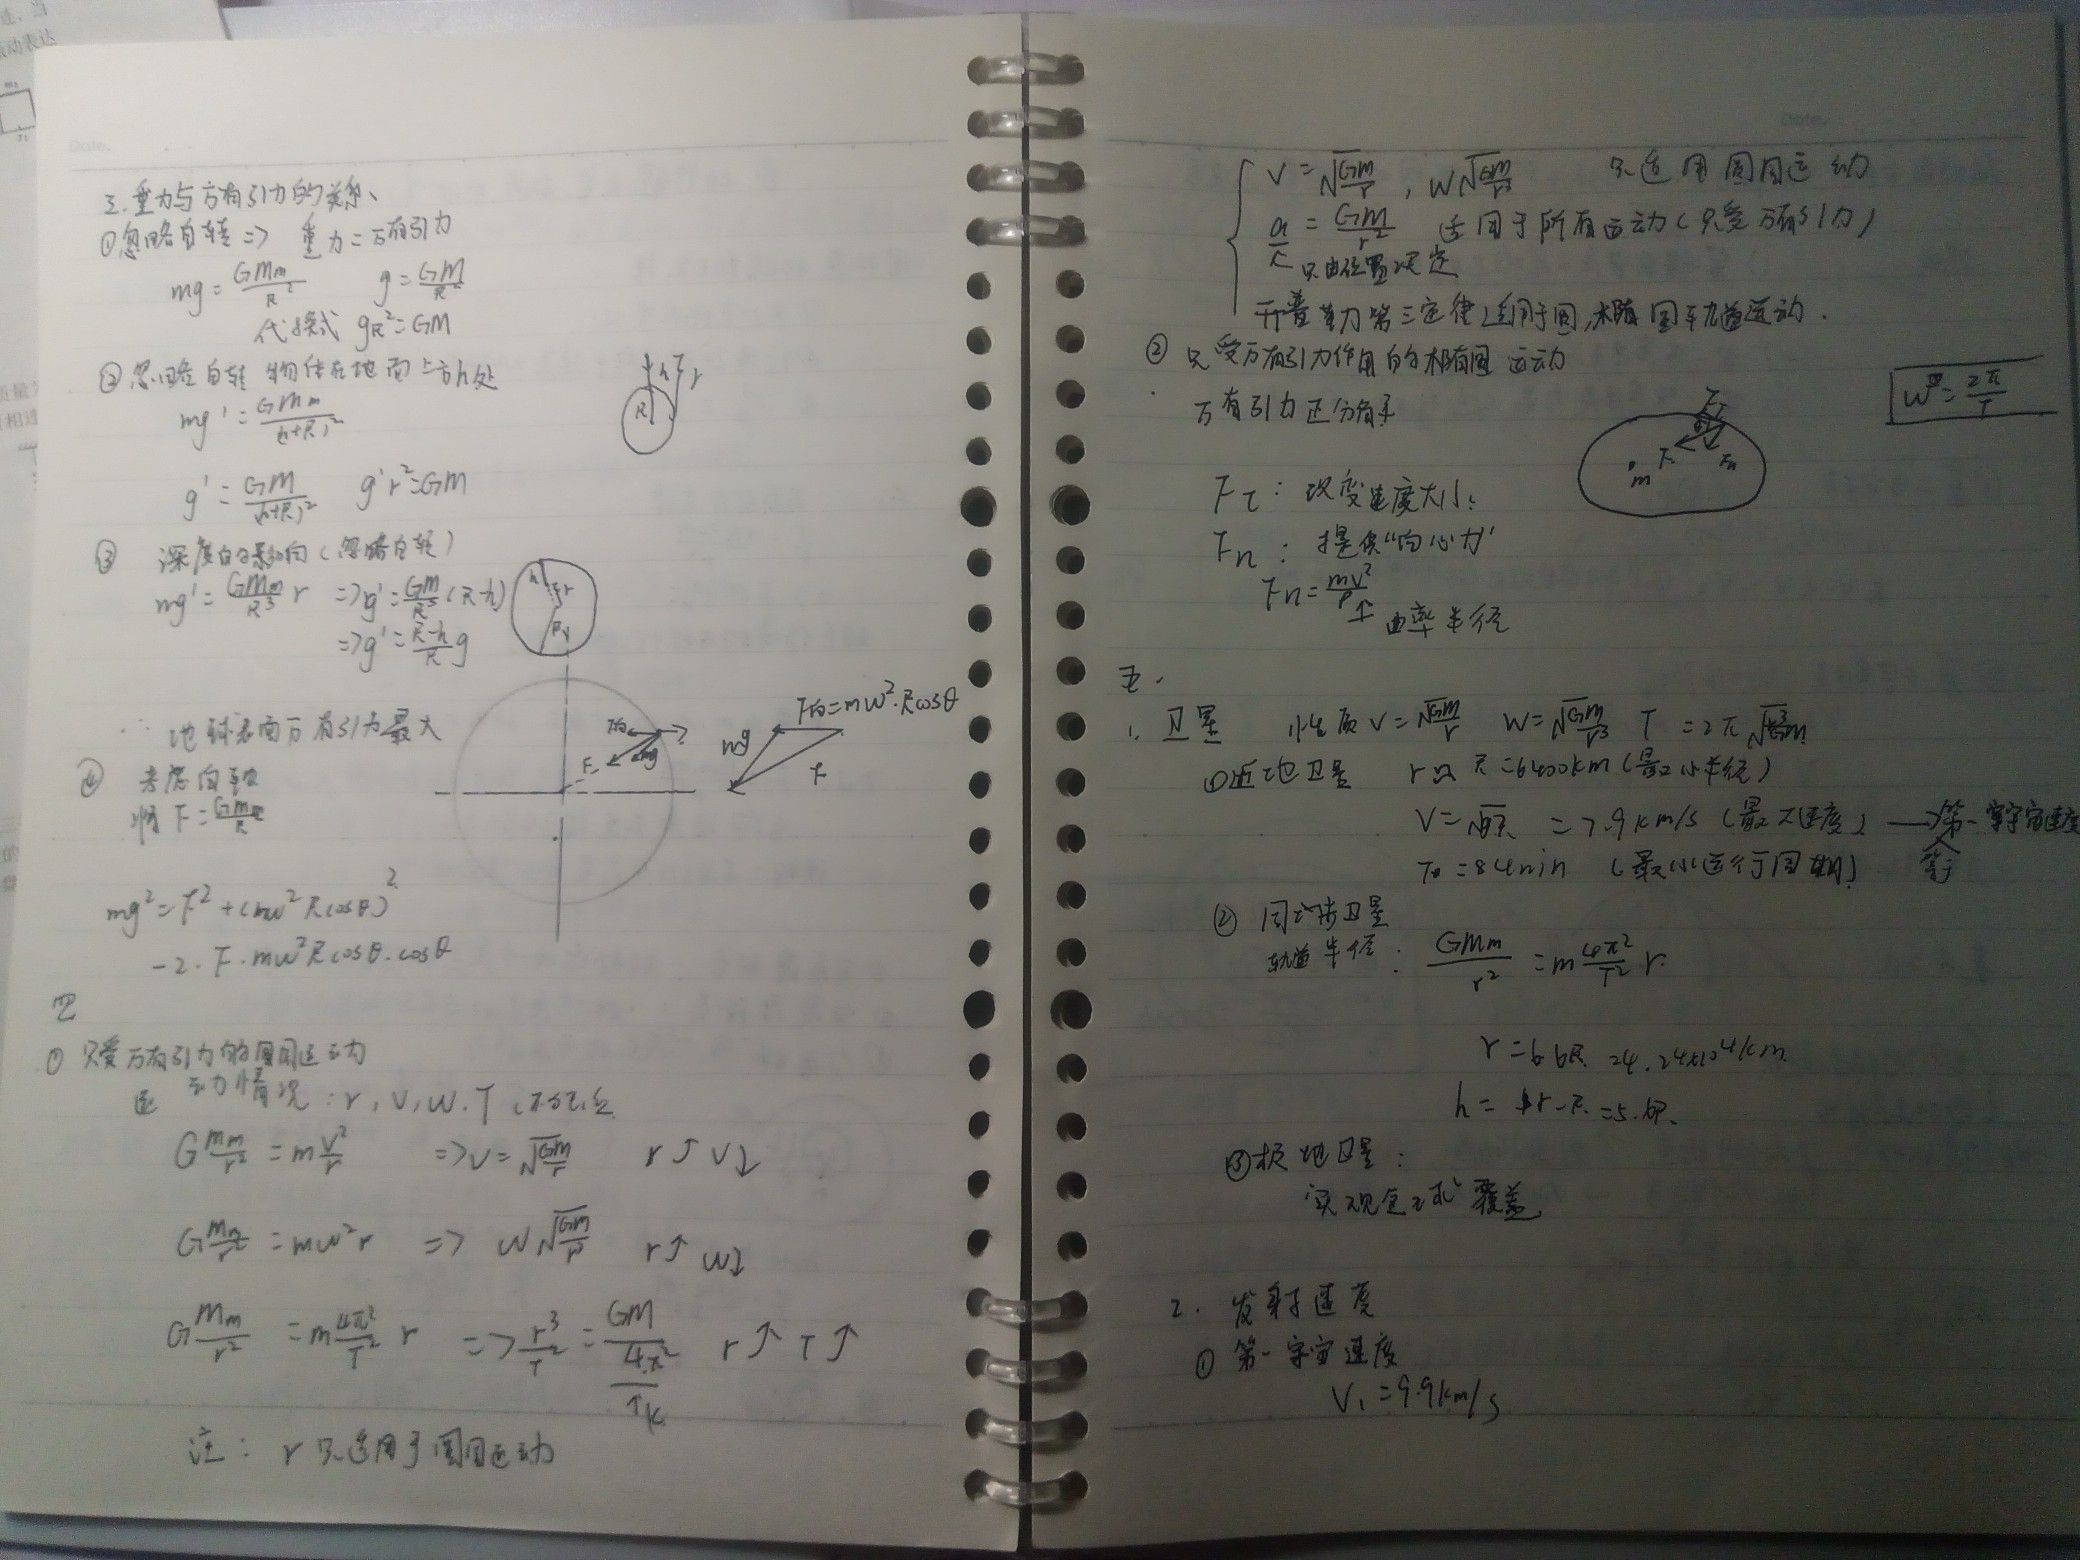 Date.
三.重力与万有引力的关系、
①忽略自转=> 重力=万有引力
mg=GMm/R² g=GM/R²
代换式 gR²=GM
②忽略自转 物体在地面上方h处
mg'=GMm/(h+R)²
h r
R
g'=GM/(h+R)² g'r²=GM
③ 深度的影响(忽略自转)
mg'=GMm/R³ r =>g'=GM/R³(R-h)
=>g'=R-h/R g
h r
R
∴地球表面万有引力最大
④ 考虑自转
F=GMm/R²
F向 F mg
F向=mw²·Rcosθ
mg F
mg²=F²+(mw²Rcosθ)²
-2·F·mw²Rcosθ·cosθ
四
① 只受万有引力的圆周运动
运动情况:r,v,w.T
G Mm/r² =m v²/r =>v=√GM/r r↑v↓
G Mm/r² =mw²r => w√GM/r³ r↑w↓
G Mm/r² =m 4π²/T² r =>r³/T²=GM/4π² r↑T↑
↑k
注: r只适用于圆周运动
Date.
v=√GM/r , w√GM/r³ 只适用圆周运动
a=GM/r² 适用于所有运动(只受万有引力)
只由位置决定
开普勒第三定律适用于圆,椭圆轨道运动.
② 只受万有引力作用的椭圆运动
w=2π/T
万有引力正分解
Fτ F Fn
m
Fτ: 改变速度大小.
Fn: 提供"向心力"
Fn=mv²/ρ
↑曲率半径
五.
1. 卫星 性质 v=√GM/r w=√GM/r³ T=2π√r³/GM
①近地卫星 r≈R=6400km(最小半径)
v=√gR =7.9km/s(最大速度)→第一宇宙速度
等于
T=84min (最小运行周期)
② 同步卫星
轨道半径: GMm/r² =m 4π²/T² r.
r=6.6R 24.24×10⁴km
h=r-R.=5.6R.
③极地卫星:
实现全球覆盖
2. 发射速度
① 第一宇宙速度
V₁=9.9km/s